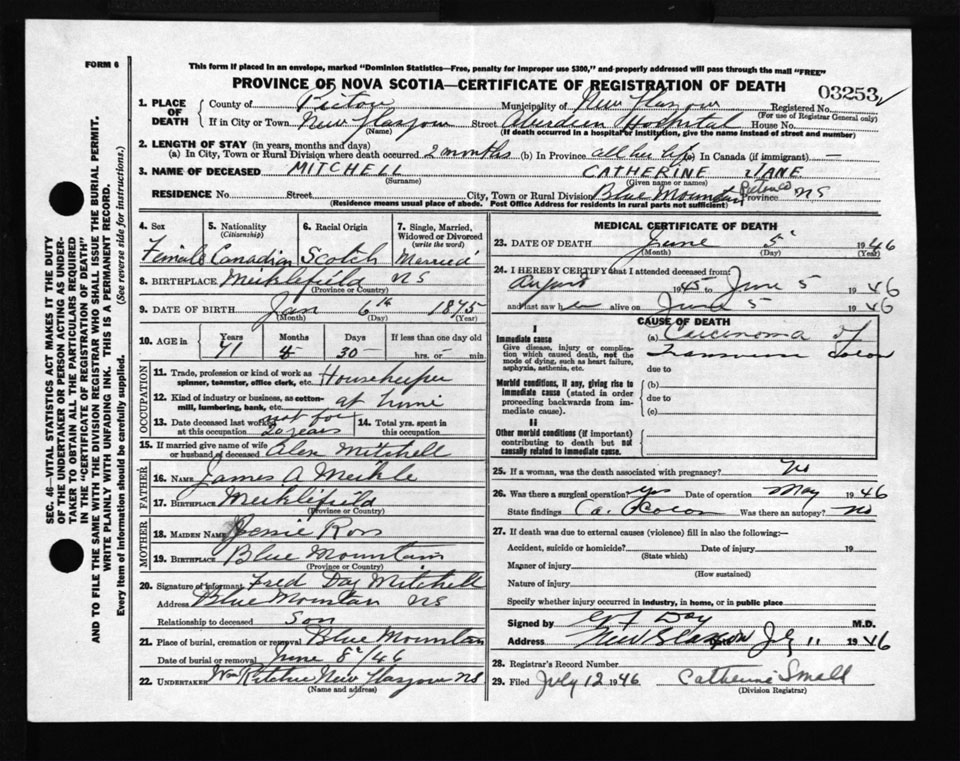 FORM 6
This form if placed in an envelope, marked "Dominion Statistics—Free, penalty for improper use $300," and properly addressed will pass through the mail "FREE"
PROVINCE OF NOVA SCOTIA—CERTIFICATE OF REGISTRATION OF DEATH
03253
1. PLACE OF DEATH
County of Pictou Municipality of New Glasgow Registered No.
(For use of Registrar General only)
If in City or Town New Glasgow Street Aberdeen Hospital House No.
(Name) (If death occurred in a hospital or institution, give the name instead of street and number)
2. LENGTH OF STAY (in years, months and days)
(a) In City, Town or Rural Division where death occurred 2 months (b) In Province all her life (c) In Canada (if immigrant) —
3. NAME OF DECEASED MITCHELL CATHERINE JANE
(Surname) (Given name or names)
RESIDENCE No. Street City, Town or Rural Division Blue Mountain Pictou Co Province NS
(Residence means usual place of abode. Post Office Address for residents in rural parts not sufficient)
4. Sex 5. Nationality (Citizenship) 6. Racial Origin 7. Single, Married, Widowed or Divorced (write the word)
Female Canadian Scotch Married
8. BIRTHPLACE Meiklefield NS
(Province or Country)
9. DATE OF BIRTH Jan 6th 1875
(Month) (Day) (Year)
10. AGE in Years Months Days If less than one day old
71 4 30 hrs. or min.
OCCUPATION
11. Trade, profession or kind of work as spinner, teamster, office clerk, etc. Housekeeper
12. Kind of industry or business, as cotton-mill, lumbering, bank, etc. at home
13. Date deceased last worked at this occupation not for 20 years 14. Total yrs. spent in this occupation
15. If married give name of wife or husband of deceased Alex Mitchell
FATHER
16. NAME James A Meikle
17. BIRTHPLACE Meiklefield
(Province or Country)
MOTHER
18. MAIDEN NAME Jessie Ross
19. BIRTHPLACE Blue Mountain
(Province or Country)
20. Signature of informant Fred Day Mitchell
Address Blue Mountan NS
Relationship to deceased Son
21. Place of burial, cremation or removal Blue Mountain
Date of burial or removal June 8th/46
22. UNDERTAKER Wm Ritchie New Glasgow NS
(Name and address)
MEDICAL CERTIFICATE OF DEATH
23. DATE OF DEATH June 5th 1946
(Month) (Day) (Year)
24. I HEREBY CERTIFY that I attended deceased from
August 1945 to June 5 1946
and last saw her alive on June 5 1946
CAUSE OF DEATH
I
Immediate cause
Give disease, injury or complication which caused death, not the mode of dying, such as heart failure, asphyxia, asthenia, etc.
(a) Carcinoma of Transverse Colon
due to
Morbid conditions, if any, giving rise to immediate cause (stated in order proceeding backwards from immediate cause).
(b)
due to
(c)
II
Other morbid conditions (if important) contributing to death but not causally related to immediate cause.
25. If a woman, was the death associated with pregnancy? No
26. Was there a surgical operation? Yes Date of operation May 1946
State findings Ca. of Colon Was there an autopsy? No
27. If death was due to external causes (violence) fill in also the following:—
Accident, suicide or homicide? Date of injury 19
(State which)
Manner of injury
(How sustained)
Nature of injury
Specify whether injury occurred in industry, in home, or in public place
Signed by Day M.D.
Address New Glasgow Date July 11 1946
28. Registrar's Record Number
29. Filed July 12 1946 Catherine Small
(Division Registrar)
SEC. 46—VITAL STATISTICS ACT MAKES IT THE DUTY
OF THE UNDERTAKER OR PERSON ACTING AS UNDER-
TAKER TO OBTAIN ALL THE PARTICULARS REQUIRED
IN THE "CERTIFICATE OF REGISTRATION OF DEATH"
AND TO FILE THE SAME WITH THE DIVISION REGISTRAR WHO SHALL ISSUE THE BURIAL PERMIT.
WRITE PLAINLY WITH UNFADING INK. THIS IS A PERMANENT RECORD.
Every item of information should be carefully supplied. (See reverse side for instructions.)